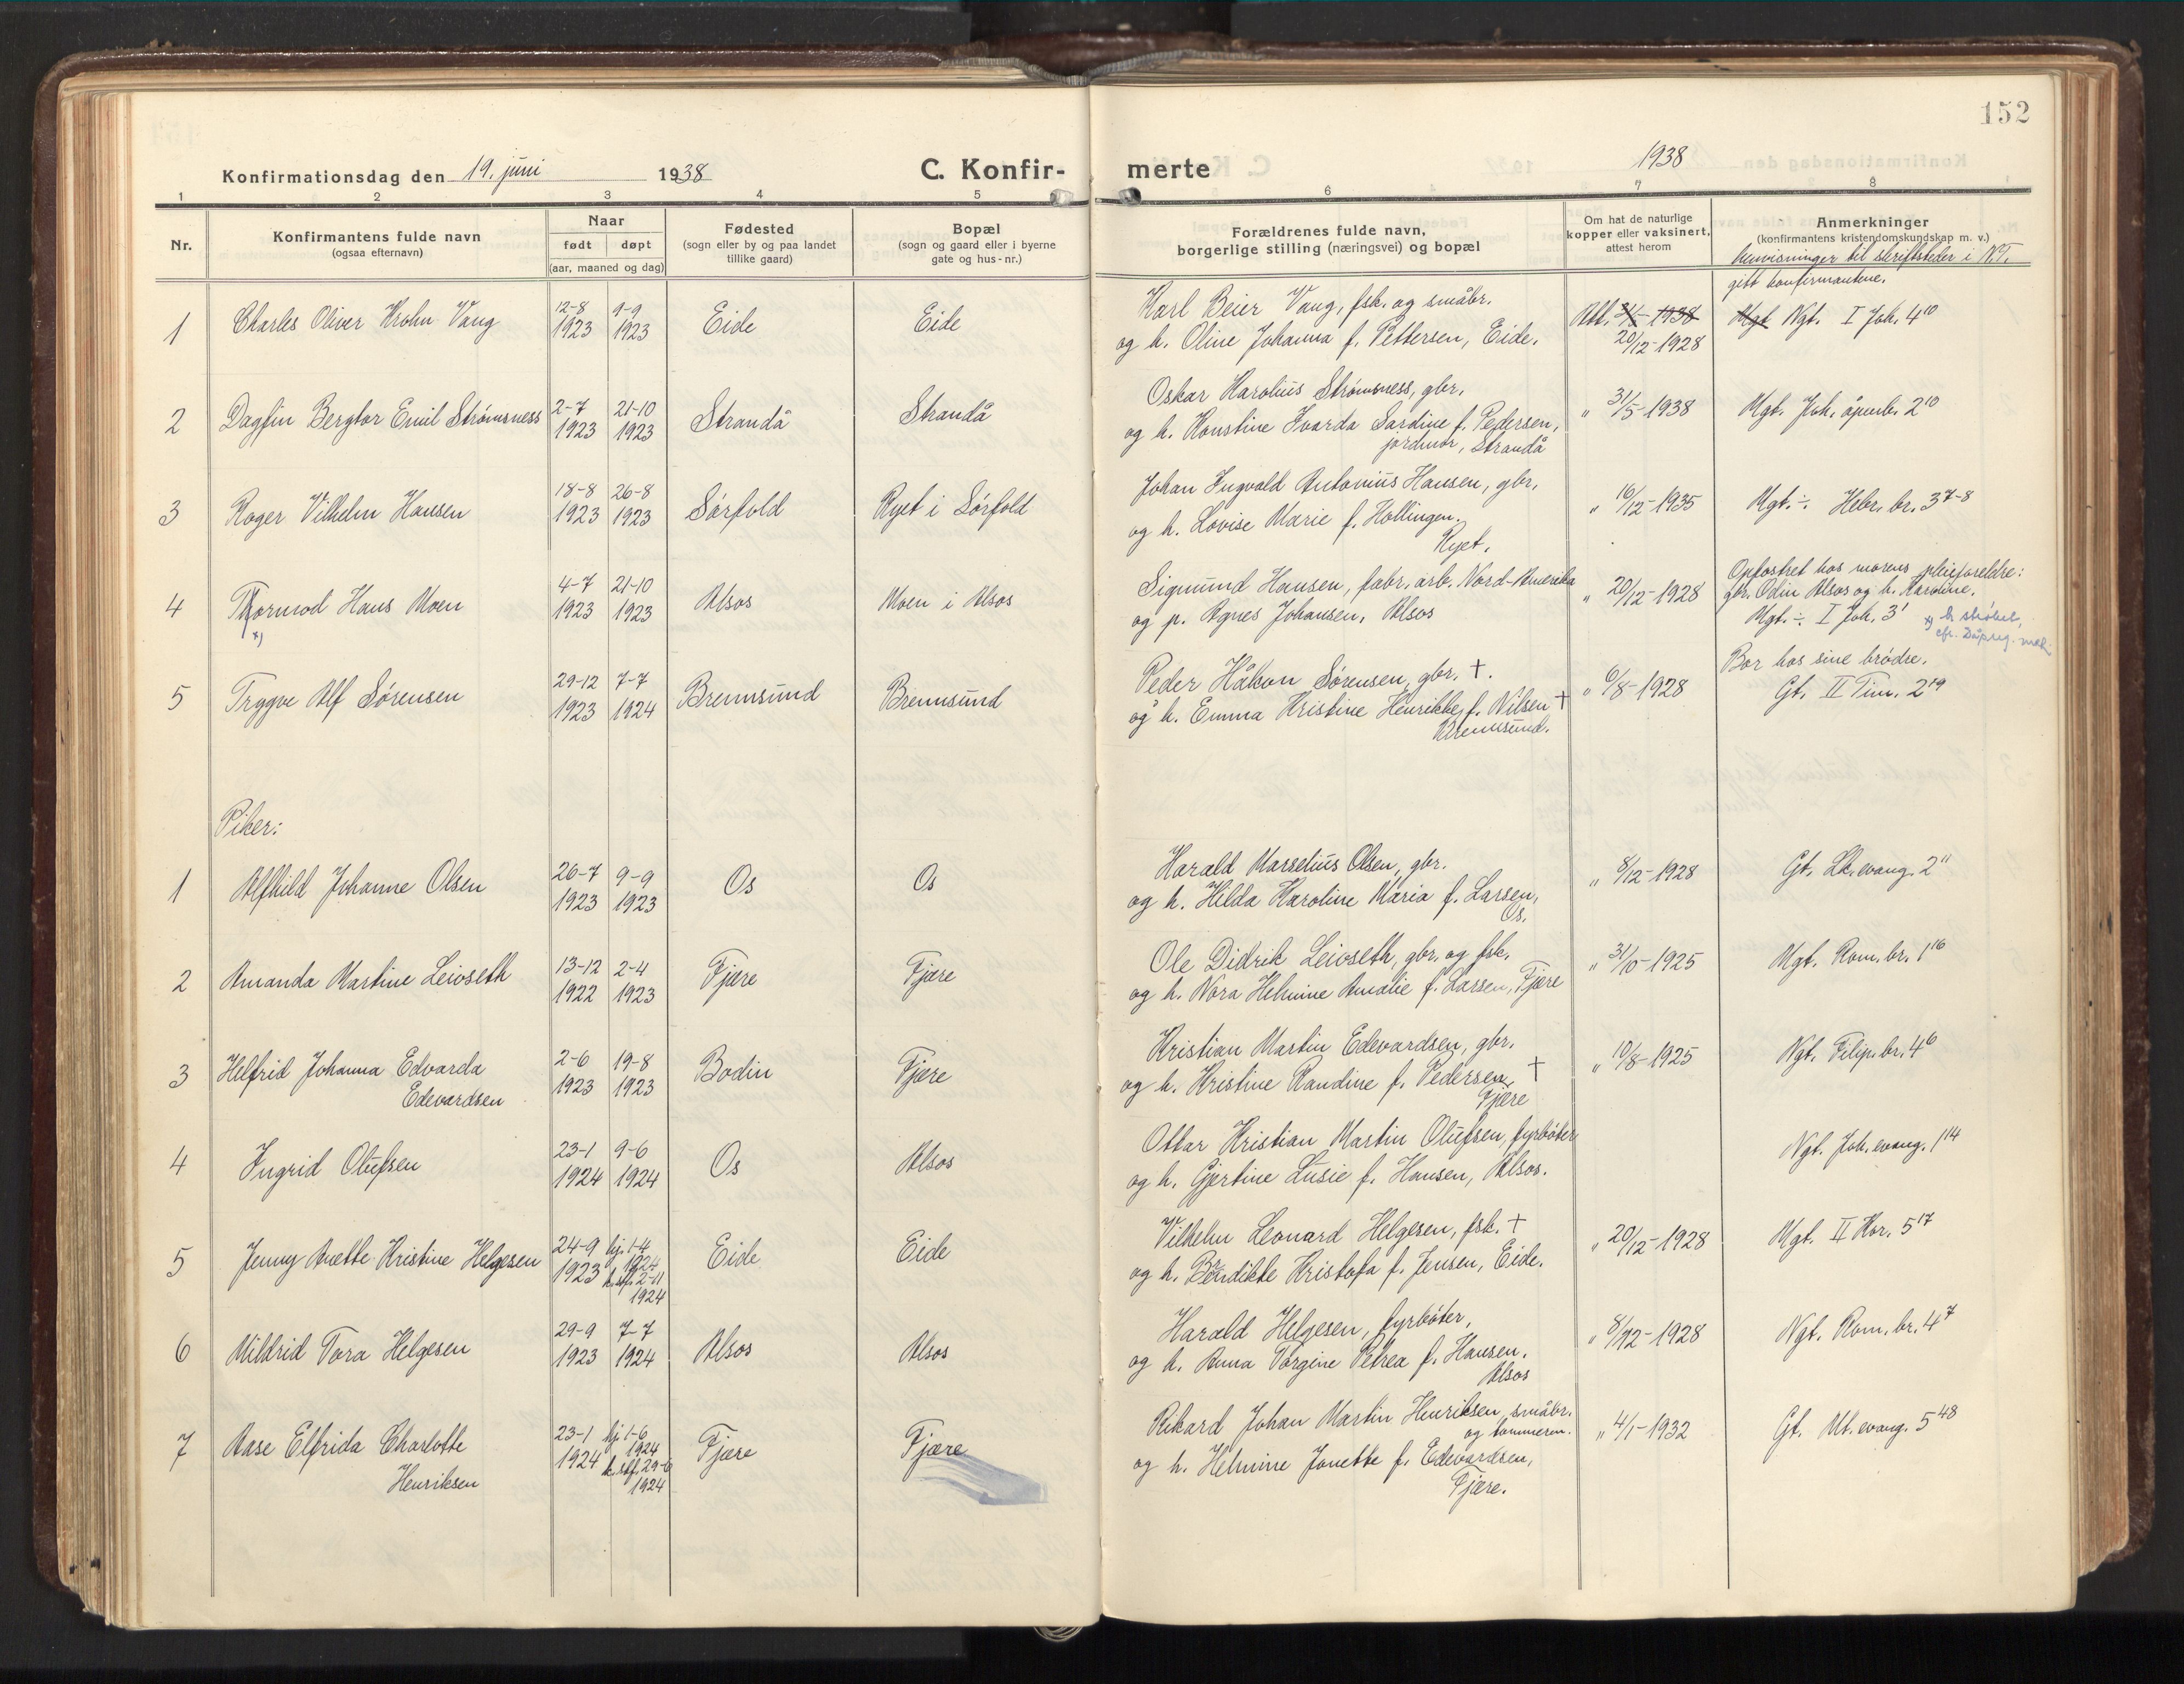 152
Konfirmationsdag den 19. juni 1938
C. Konfir- merte
1938
1 2 3 4 5 6 7 8
Nr.
Konfirmantens fulde navn
(ogsaa efternavn)
Naar
født døpt
(aar, maaned og dag)
Fødested
(sogn eller by og paa landet
tillike gaard)
Bopæl
(sogn og gaard eller i byerne
gate og hus-nr.)
Forældrenes fulde navn,
borgerlige stilling (næringsvei) og bopæl
Om hat de naturlige
kopper eller vaksinert,
attest herom
Anmerkninger
(konfirmantens kristendomskundskap m. v.)
Henvisninger til skriftsteder i N.T.
gitt konfirmantene.
1 Charles Oliver Krohn Vang
12-8 1923
9-9 1923
Eide
Eide
Karl Beier Vang, fsk. og småbr.
og h. Oline Johanna f. Pettersen, Eide.
Att. 31/5-1938
20/12-1928
Mgt Ngt. I Joh. 4 10
2 Dagfin Bergtor Emil Strømsness
2-7 1923
21-10 1923
Strandå
Strandå
Oskar Harolius Strømsness, gbr.
og h. Konstine Ivarda Sardine f. Pedersen,
jordmor, Strandå
" 31/5-1938
Mgt. Joh. åpenb. 2 10
3 Roger Vilhelm Hansen
18-8 1923
26-8 1923
Sørfold
Ryet i Sørfold
Johan Ingvald Antonius Hansen, gbr.
og h. Lovise Marie f. Hollingen.
Ryet.
" 16/12-1935
Mgt. ÷ Hebr. br. 3 7-8
4 Thormod Hans Moen
x)
4-7 1923
21-10 1923
Alsos
Moen i Alsos
Sigmund Hansen, fabr. arb. Nord-Amerika
og p. Agnes Johansen, Alsos
" 20/12-1928
Opfostret hos morens pleieforeldre:
gbr. Odin Alsos og h. Karoline.
Mgt. ÷ I Joh. 3 1
x) h strøket,
cfr. Dåpreg.
5 Trygve Alf Sørensen
29-12 1923
7-7 1924
Brennsund
Brennsund
Peder Håkon Sørensen, gbr. +.
og h. Emma Kristine Henrikke f. Nilsen +
Brennsund.
" 6/8-1928
Bor hos sine brødre.
Gt. II Tim. 2 19
Piker:
1 Alfhild Johanne Olsen
26-7 1923
9-9 1923
Os
Os
Harald Marselius Olsen, gbr.
og h. Hilda Karoline Maria f. Larsen,
Os.
" 8/12-1928
Gt. Lk. evang. 2 11
2 Amanda Martine Leivseth
13-12 1922
2-4 1923
Fjære
Fjære
Ole Didrik Leivseth, gbr. og fsk.
og h. Nora Helmine Amalie f. Larsen, Fjære
" 31/10-1925
Mgt. Rom. br. 1 16
3 Helfrid Johanna Edvarda
Edevardsen
2-6 1923
19-8 1923
Bodin
Fjære
Kristian Martin Edevardsen, gbr.
og h. Kristine Randine f. Pedersen +
Fjære
" 10/8-1925
Ngt. Filip. br. 4 6
4 Ingrid Olufsen
23-1 1924
9-6 1924
Os
Alsos
Ottar Kristian Martin Olufsen, fyrbøter
og h. Gjertine Lusie f. Hansen, Alsos.
Ngt. Joh. evang. 1 14
5 Jenny Anette Kristine Helgesen
24-9 1923
hj. 1-4 1924
k. stf. 2-11 1924
Eide
Eide
Vilhelm Leonard Helgesen, fsk. +
og h. Bendikte Kristofa f. Jensen, Eide.
" 20/12-1928
Mgt. II Kor. 5 17
6 Mildrid Tora Helgesen
29-9 1923
7-7 1924
Alsos
Alsos
Harald Helgesen, fyrbøter,
og h. Anna Torgine Petrea f. Hansen.
Alsos
" 8/12-1928
Ngt. Rom. br. 4 7
7 Aase Elfrida Charlotte
Henriksen
23-1 1924
hj. 1-6 1924
k. stf. 29-6 1924
Fjære
Fjære
Rikard Johan Martin Henriksen, småbr.
og tømmerm.
og h. Helmine Jonette f. Edevardsen,
Fjære.
" 4/1-1932
Gt. Mt. evang. 5 48